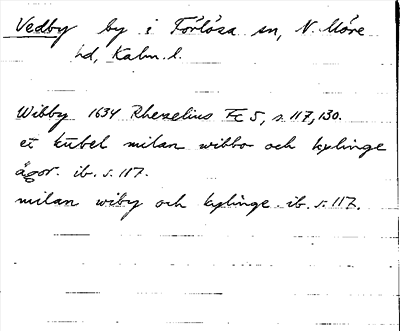 Vedby by i Förlösa sn, N. Möre
hd, Kalm. l.
Wibby 1634 Rhezelius Fc 5, s. 117, 130.
et kubel milan wibbo och kylinge
ägor. ib. s. 117.
milan wiby och kylinge. ib. s. 117.